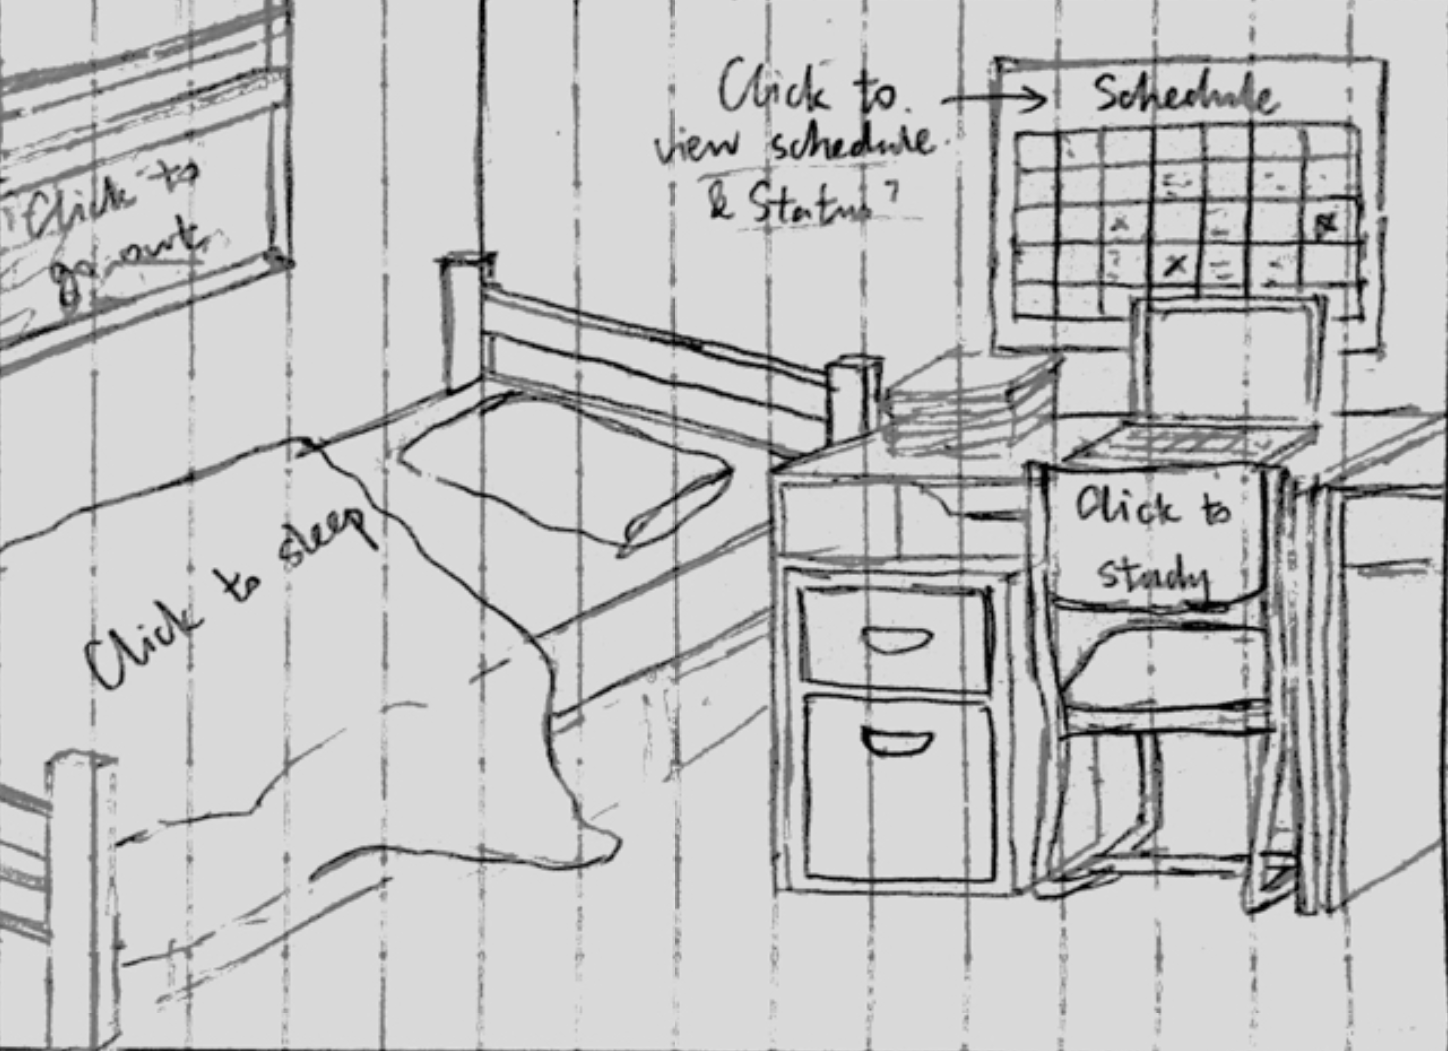 Click to
go out
Click to
view schedule
& Status?
Schedule
Click to sleep
Click to
study